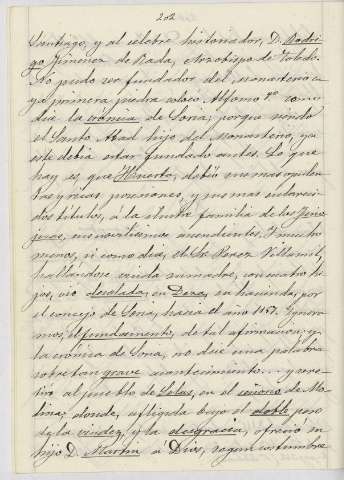 202
Santiago, y al célebre historiador, D. Rodri
go Jimenez de Rada, Arzobispo de Toledo.
No pudo ser fundador del monasterio cu
ya primera piedra coloco Alfonso 7º como
dice la crónica de Soria; porque siendo
el Santo Abad hijo del Monasterio, ya
este debia estar fundado antes. Lo que
hay es, que Huerta, debió sus mas opulen
tas y ricas posesiones, y sus mas esclareci
dos títulos, a la ilustre familia de los
sus novilisimos ascendientes. Y mucho
menos, si como dice, el Sr. Perez Villamil,
hallándose viuda su madre, con cuatro hi
jos, vió desolada, en Deza, su hacienda, por
el concejo de Soria, hacia el año 1157. Ignora
mos, el fundamento, de tal afirmacion; y
la crónica de Soria, no dice una palabra
sobre tan grave acontecimiento... y se reti
ró al pueblo de en el señorio de Mo
lina; donde, afligida bajo el doble peso
de la viudez, y la desgracia, ofreció su
hijo D. Martin á Dios, segun costumbre